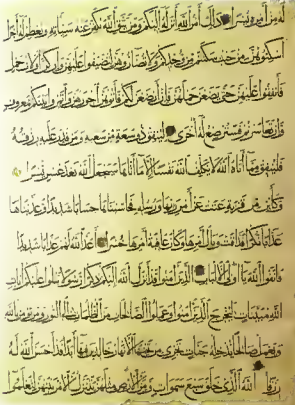 له من أمره يسرا ذلك أمر الله أنزله إليكم ومن يتق الله يكفر عنه سيئاته ويعظم له أجرا
أسكنوهن من حيث سكنتم من وجدكم ولا تضاروهن لتضيقوا عليهن وإن كن أولات حمل
فأنفقوا عليهن حتى يضعن حملهن فإن أرضعن لكم فآتوهن أجورهن وأتمروا بينكم بمعروف
وإن تعاسرتم فسترضع له أخرى لينفق ذو سعة من سعته ومن قدر عليه رزقه
فلينفق مما آتاه الله لا يكلف الله نفسا إلا ما آتاها سيجعل الله بعد عسر يسرا
وكأين من قرية عتت عن أمر ربها ورسله فحاسبناها حسابا شديدا وعذبناها
عذابا نكرا فذاقت وبال أمرها وكان عاقبة أمرها خسرا أعد الله لهم عذابا شديدا
فاتقوا الله يا أولي الألباب الذين آمنوا قد أنزل الله إليكم ذكرا رسولا يتلوا عليكم آيات
الله مبينات ليخرج الذين آمنوا وعملوا الصالحات من الظلمات إلى النور ومن يؤمن بالله
ويعمل صالحا يدخله جنات تجري من تحتها الأنهار خالدين فيها أبدا قد أحسن الله له
رزقا الله الذي خلق سبع سموات ومن الأرض مثلهن يتنزل الأمر بينهن لتعلموا